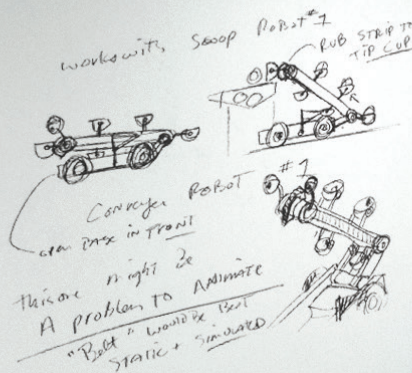 works with Scoop Robot #1
RUB STRIP TO
TIP CUP
Conveyer ROBOT #1
open BASE in FRONT
this one might be
A problem to ANIMATE
"Belt" would be Best
STATIC + SIMULATED